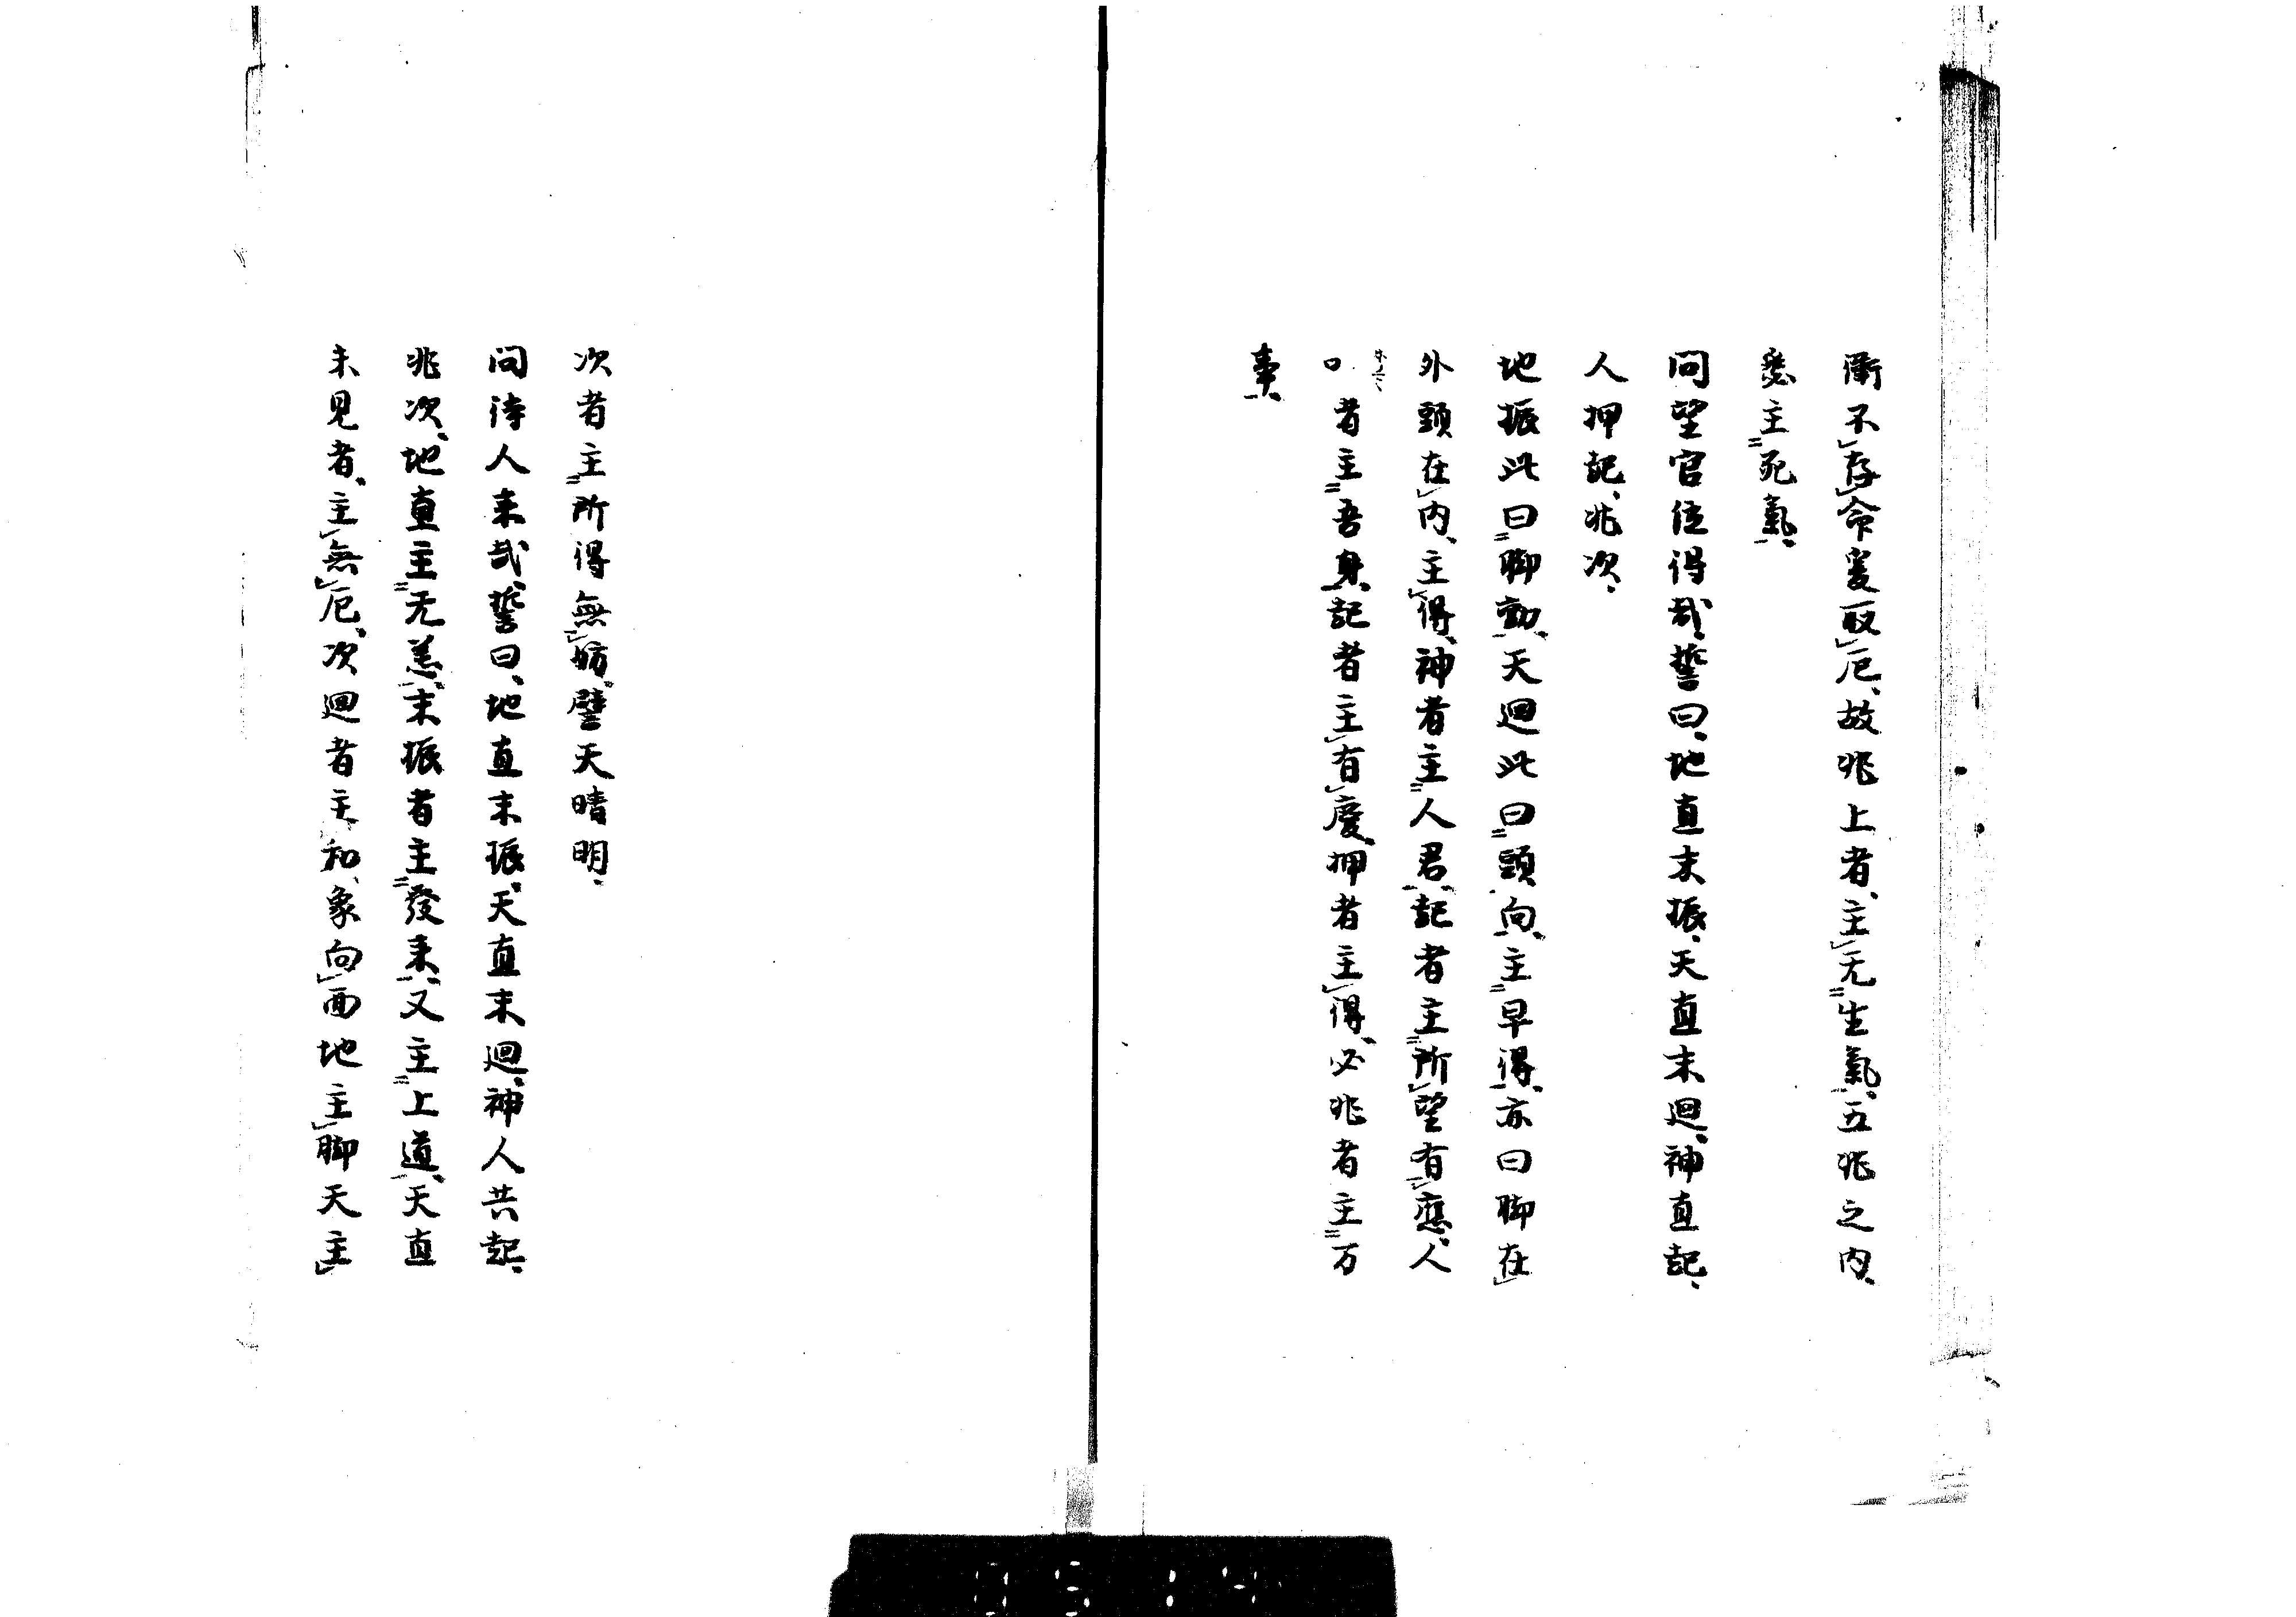 衛不存命受取厄、故兆上者、主无生氣、五兆之内、
悉主死氣、
問望官位得哉、誓曰、地直末振、天直末廻、神直記、
人押記、兆次、
地振此曰脚動、天廻此曰頭向、主早得、亦曰脚在
外頭在内、主得、神者主人君、記者主所望有應、人
口者主吾身、記者主有慶、押者主得、必兆者主万
事、
次者主所得無妨、譬天晴明、
問待人来哉、誓曰、地直末振、天直末廻、神人共起、
兆次、地直主无恙、末振者主發来、又主上道、天直
未見者、主無厄、次廻者主和、象向西地主脚天主